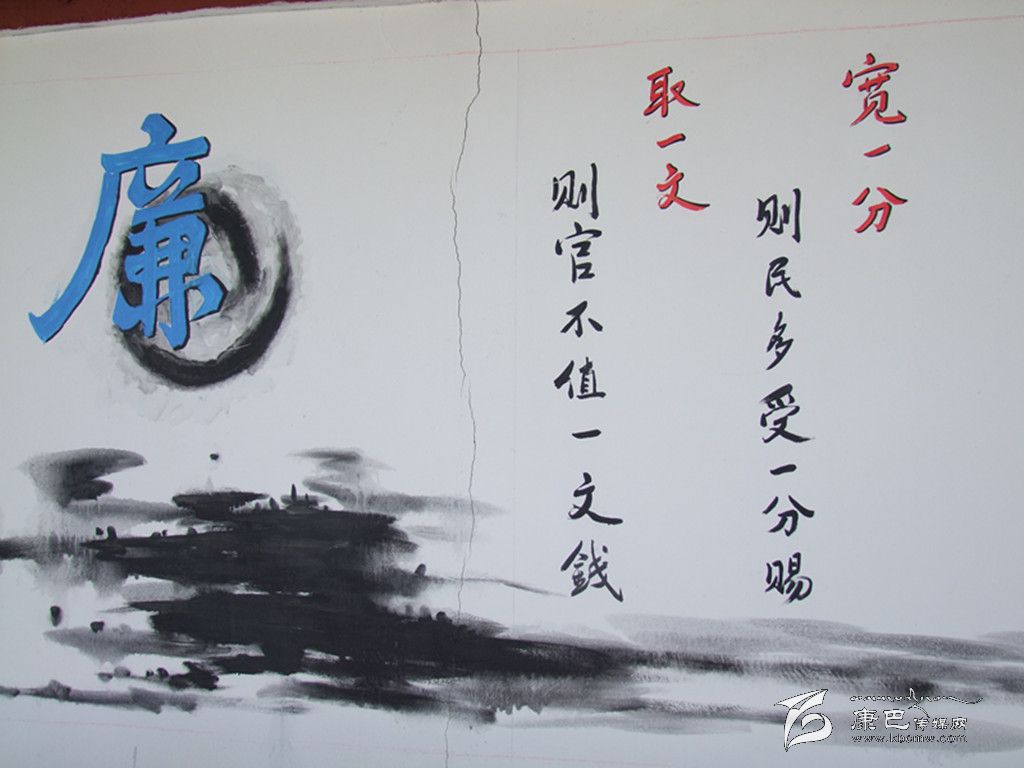 宽一分
则民多受一分赐
取一文
则官不值一文钱
廉
康巴传媒网
www.kbcmw.com